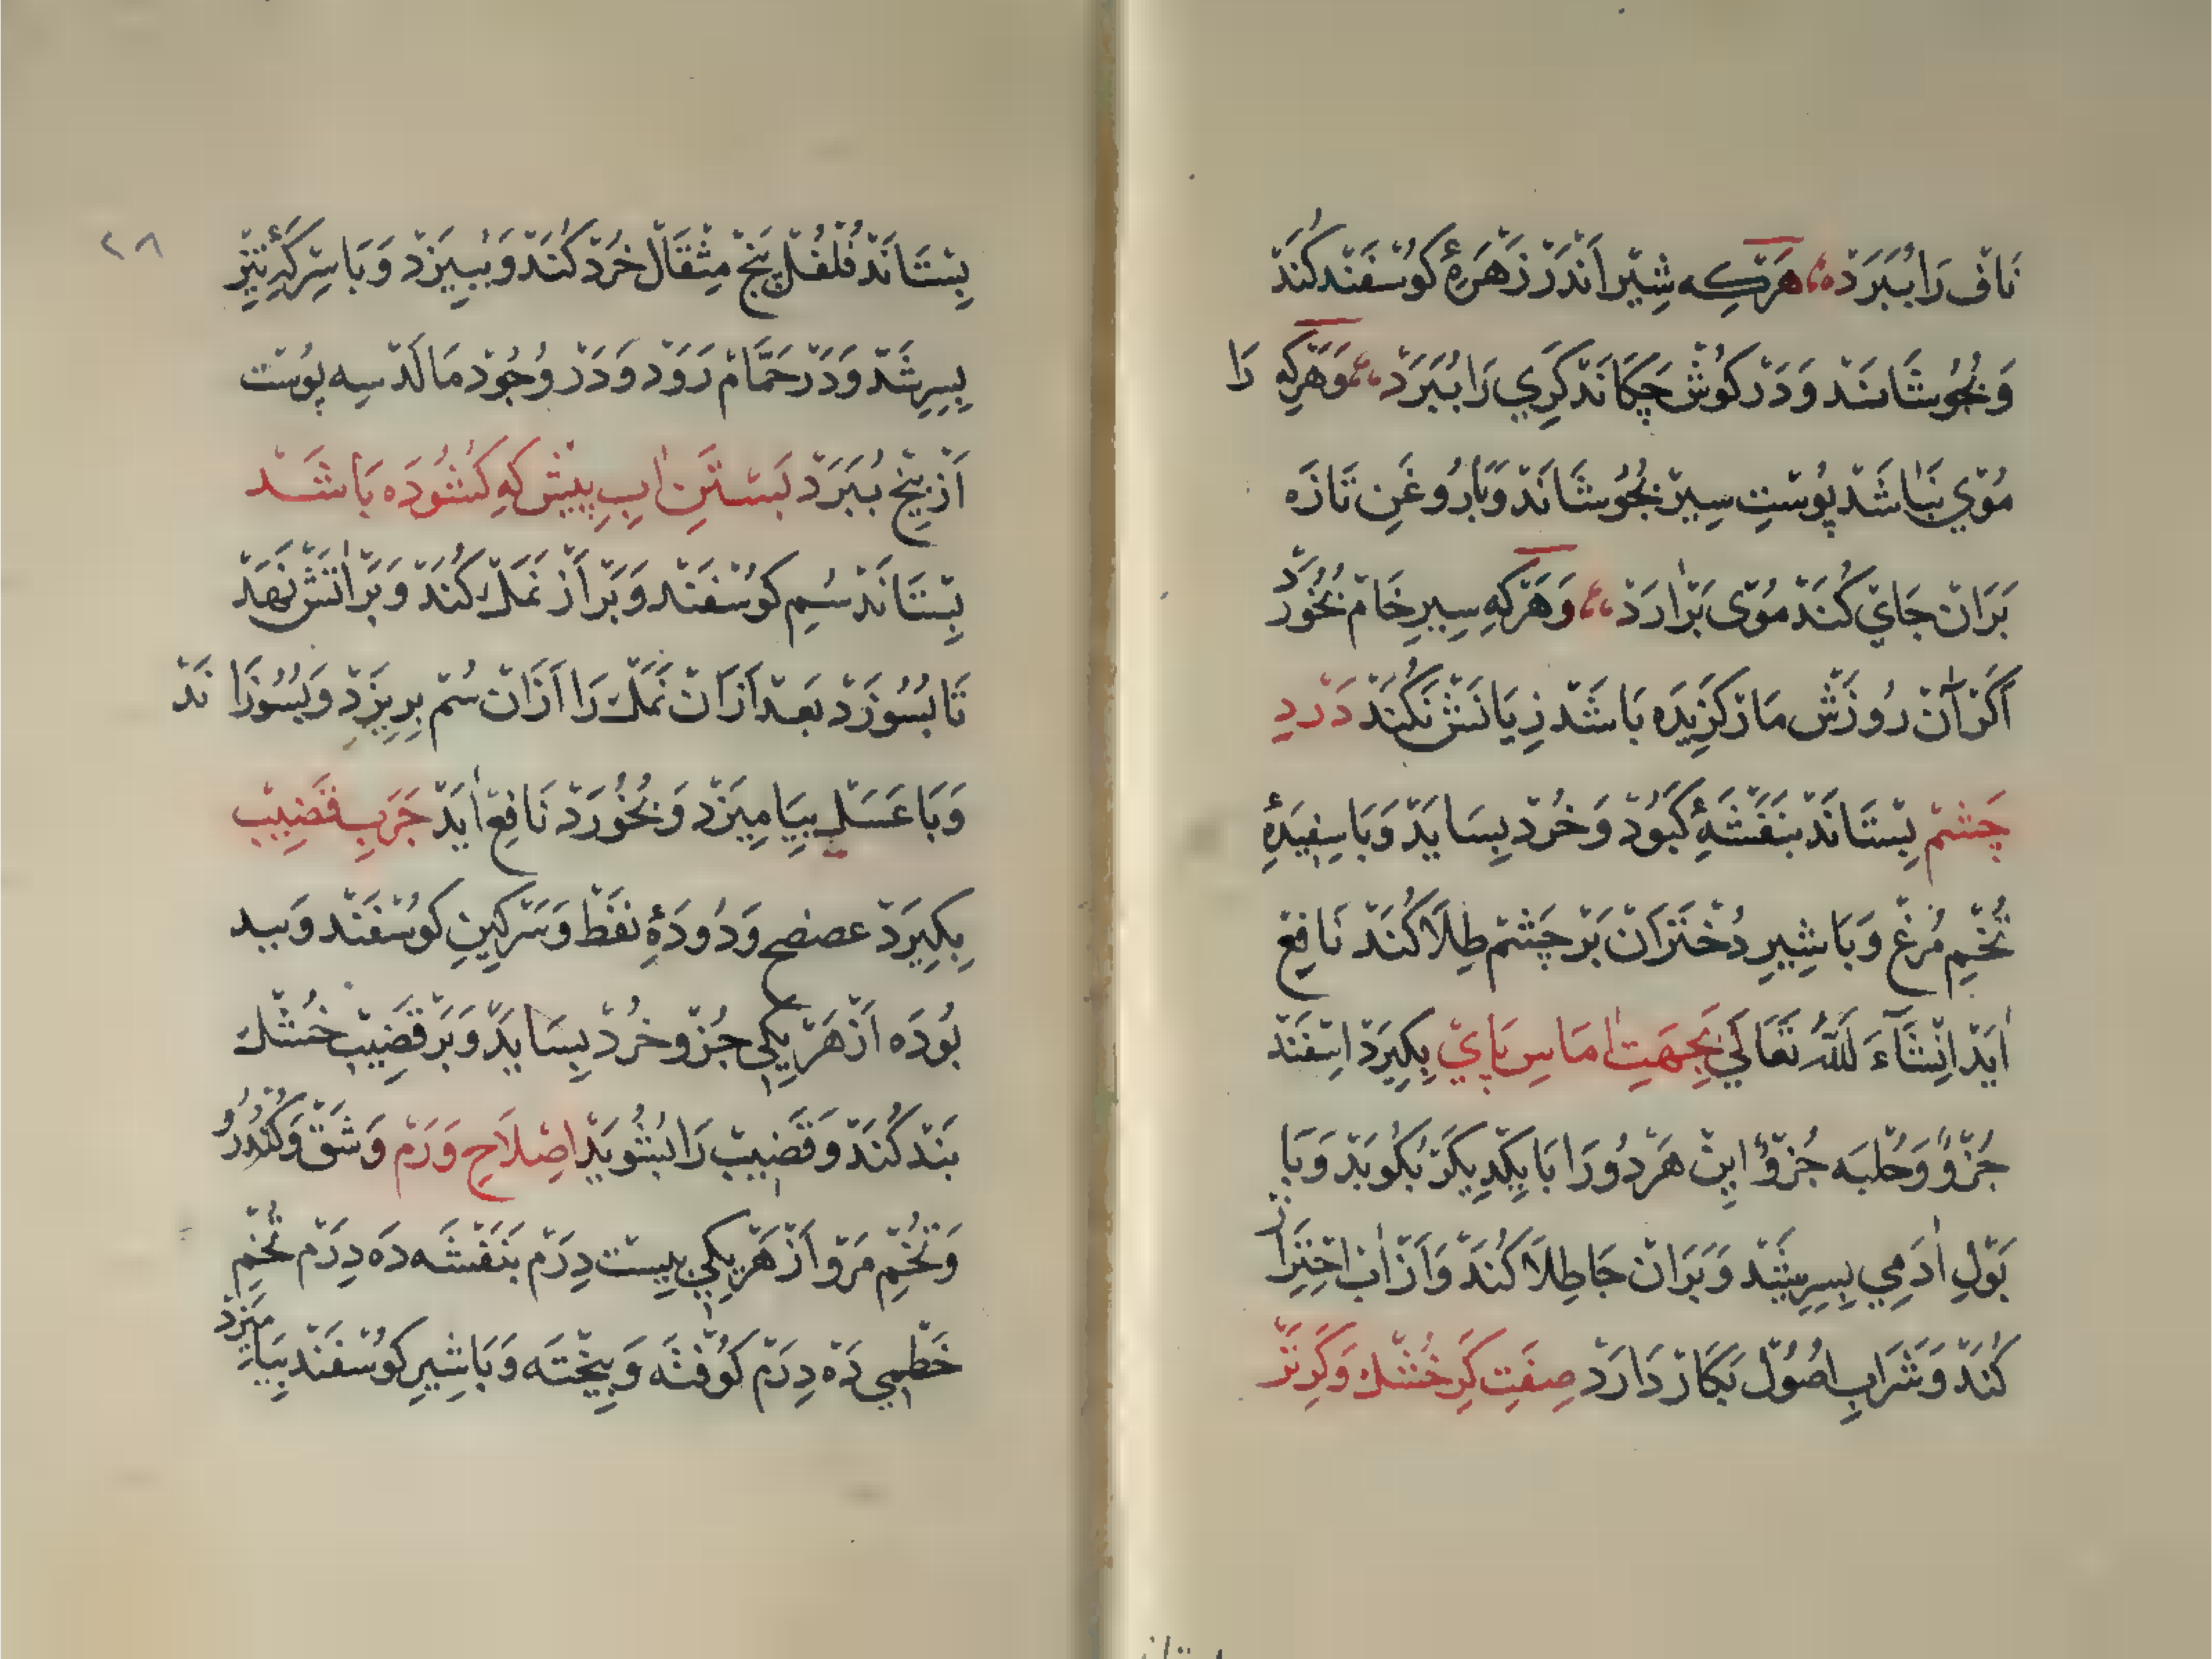 نَافْ رَا بُبَرَدْ هَرْكِه شِيْر اَنْدَرْ زَهْرَهٔ كُوسْفَنْد كُنَدْ
وَبُجُوشَانَنْد وَدَرْ كُوشْ چَكَانَدْ كَرِي رَا بُبَرَدْ وَهَرْكِه رَا
مُوْي نَبَاشَدْ پُوسْتِ سِيرْ بُجُوشَانَدْ وَبَا رُوغَنِ تَازَه
بَرَانْ جَايْ كُنَدْ مُوْى بَرْارَدْ وَهَرْكِه سِيرِ خَامْ بُخُورَدْ
اَكَرْ آنْ رُوزَشْ مَارْ كَزِيدَه بَاشَدْ زِيَانَشْ نَكُنَدْ دَرْدِ
چَشْمْ بِسْتَانَدْ بَنَفْشَهٔ كَبُودْ وَخُرْد بِسَايَدْ وَبَا سِفِيدَهٔ
تُخْمِ مُرْغْ وَبَا شِيرِ دُخْتَرَانْ بَرْ چَشْمْ طِلَا كُنَدْ نَافِعْ
اٰيَدْ اِنْشَآءَ اللهُ تَعَالَي بَجِهَتِ اٰمَاسِ پَايْ بِكِيرَدْ اِسْفَنْد
جُزْوٌ وَحُلْبَه جُزْوٌ اينْ هَرْدُو رَا بَايَكْدِيكَرْ بُكُوبَدْ وَبَا
بَوْلِ اٰدَمِي بِسِرِيشَدْ وَبَرَانْ جَا طِلَا كُنَدْ وَاَزْ اٰبْ اِحْتِرَازْ
كُنَدْ وَشَرَابِ اُصُولْ بَكَارْ دَارَدْ صِفَتِ كَرِ خُشْك وَكَرِ تَرْ
٢٨
بِسْتَانَدْ فُلْفُلْ پَنْج مِثْقَالْ خُرْد كُنَدْ وَبِبِيزَدْ وَبَا سِرْكَهٔ تِيز
بِسِرِشَدْ وَدَرْ حَمَّامْ رَوَدْ وَدَرْ وُجُودْ مَالَدْ سِه پُوسْت
اَزْ بِيخْ بُبَرَدْ بَسْتَنِ اٰبِ پِيشْ كِه كُشُودَه بَاشَدْ
بِسْتَانَدْ سُمِ كُوسْفَنْد وَبَرْ اَزْ نَمَكْ كُنَدْ وَبَرْ اٰتَشْ نِهَدْ
تَا بُسُوزَدْ بَعْد اَزْ اٰنْ نَمَكْ رَا اَزْ اٰنْ سُمْ بِرِيزَدْ وَبُسُوزَانَدْ
وَبَا عَسَلْ بِيَامِيزَدْ وَبُخُورَدْ نَافِعْ اٰيَدْ جَرَبِ قَضِيبْ
بِكِيرَدْ وَدُودَهٔ نَفْطْ وَسَرْكِينِ كُوسْفَنْد وَبيد
بُودَه اَزْ هَرْ يَكِي جُزْو خُرْد بِسَايَدْ وَبَرْ قَضِيبْ خُشْك
بَنْد كُنَدْ وَقَضِيبْ رَا بُشُويَدْ اِصْلَاحِ وَرَمْ وَشَقْ وَكُنْدُرْ
وَتُخْمِ مَرْو اَزْ هَرْ يَكِي بِيسْت دِرَمْ بَنَفْشَه دَه دِرَمْ تُخْمِ
خَطْمِي دَه دِرَمْ كُوفْتَه وَبِيخْتَه وَبَا شِيرِ كُوسْفَنْد بِيَامِيزَدْ